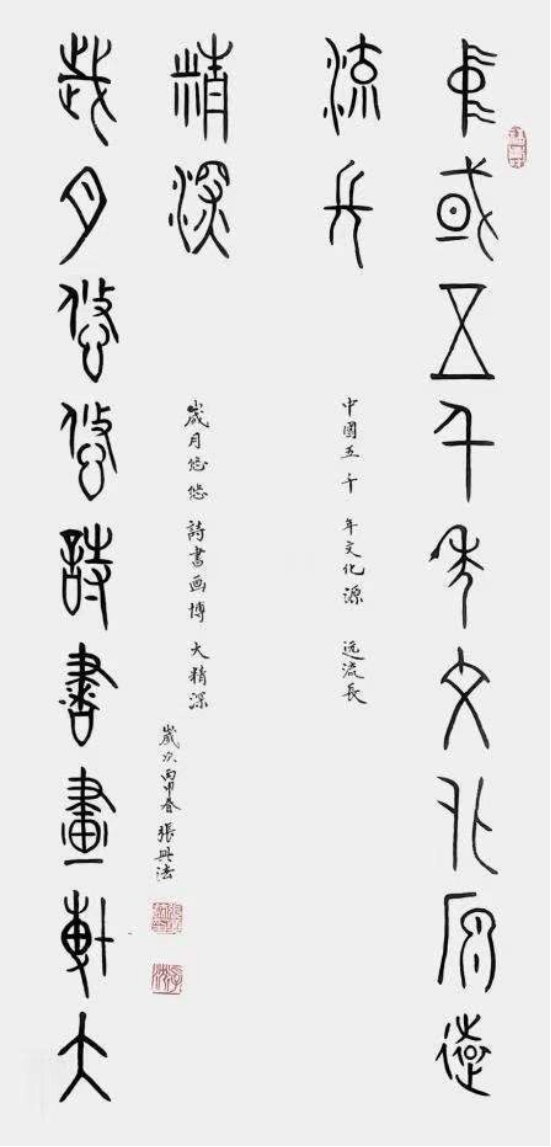 中國五千年文化源遠
流長
中國五千年文化源远流長
歲月悠悠詩書畫博大
精深
歲月悠悠詩書画博大精深
歲次丙申春張興法